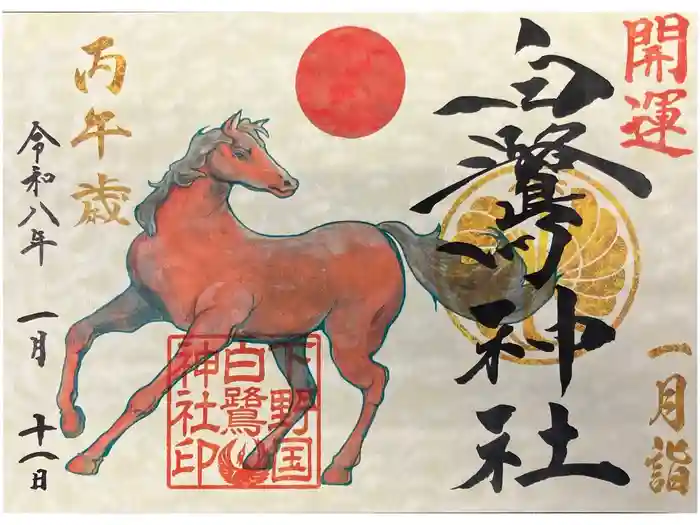 開運
白鷺神社
一月詣
丙午歳
令和八年 一月 十一日
下野国
白鷺
神社印